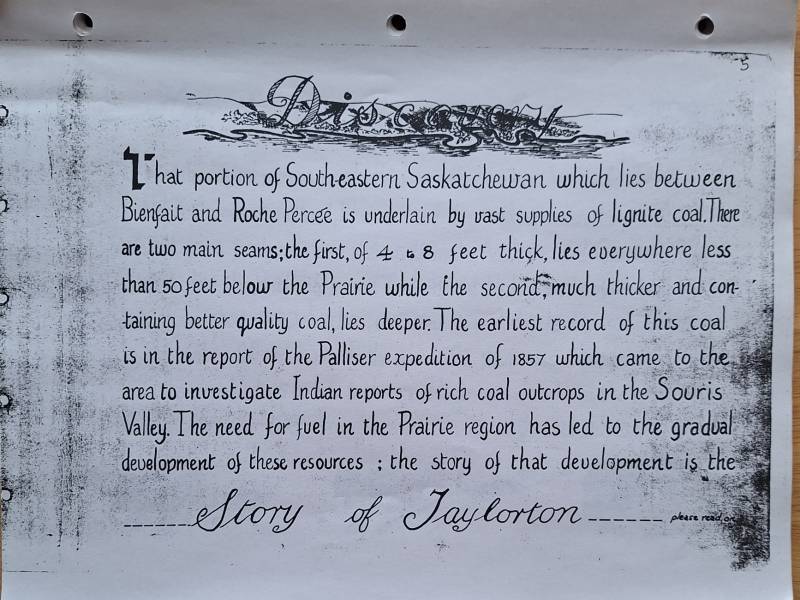 5
Discovery
That portion of South-eastern Saskatchewan which lies between
Bienfait and Roche Percée is underlain by vast supplies of lignite coal. There
are two main seams; the first, of 4 to 8 feet thick, lies everywhere less
than 50 feet below the Prairie while the second, much thicker and con-
-taining better quality coal, lies deeper. The earliest record of this coal
is in the report of the Palliser expedition of 1857 which came to the
area to investigate Indian reports of rich coal outcrops in the Souris
Valley. The need for fuel in the Prairie region has led to the gradual
development of these resources ; the story of that development is the
______Story of Taylorton------ please read on